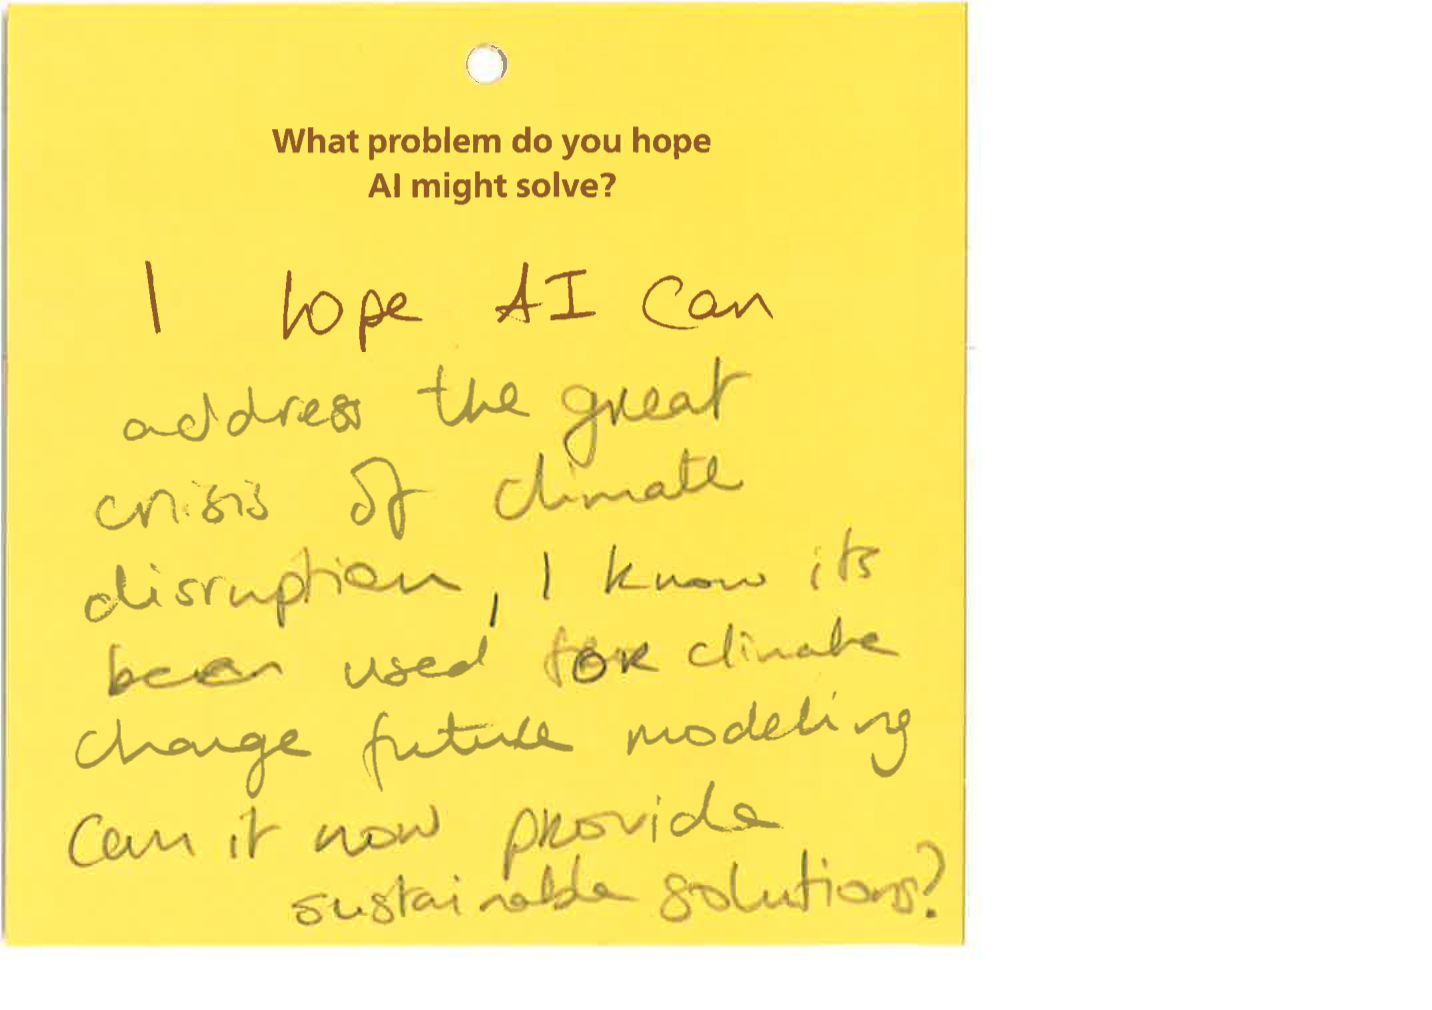 What problem do you hope
AI might solve?
I hope AI can
address the great
crisis of climate
disruption, I know its
been used for climate
change future modeling
Can it now provide
sustainable solutions?